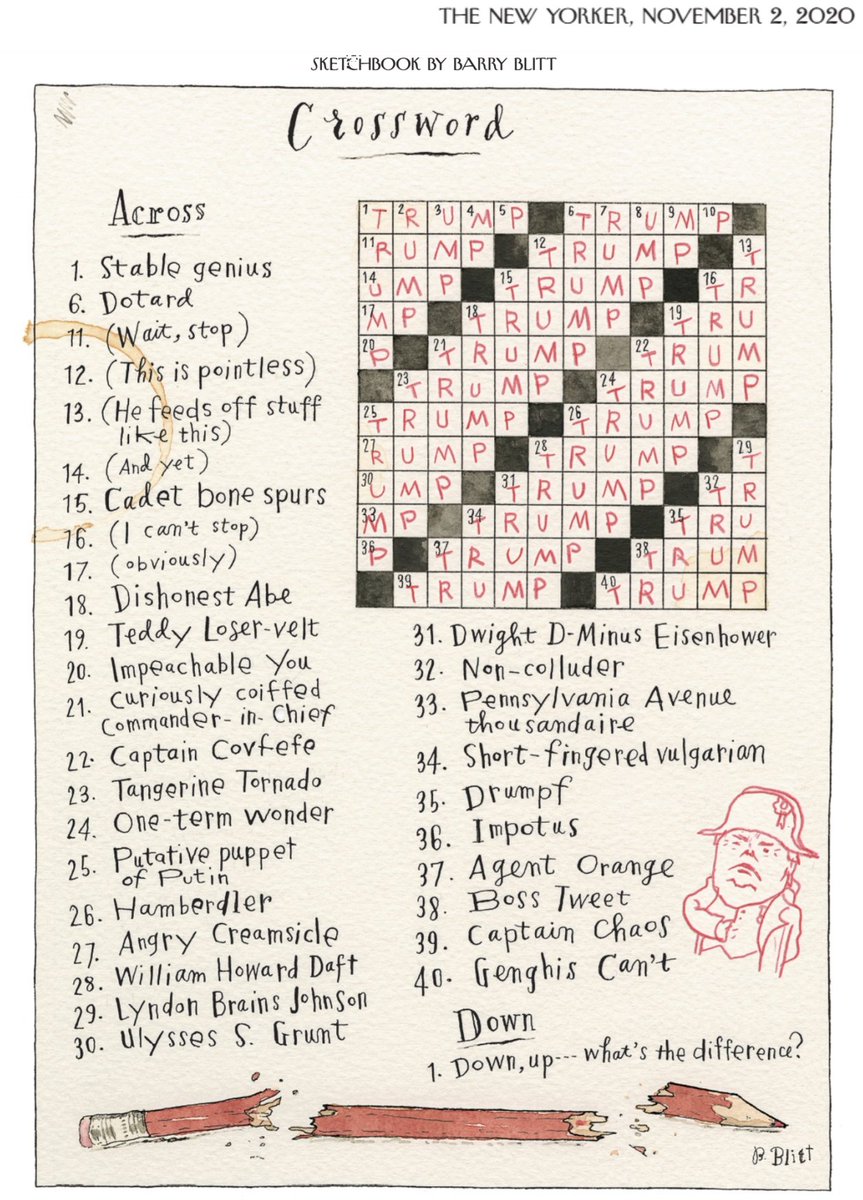 THE NEW YORKER, NOVEMBER 2, 2020
SKETCHBOOK BY BARRY BLITT
Crossword
Across
1. Stable genius
6. Dotard
11. (Wait, stop)
12. (This is pointless)
13. (He feeds off stuff
like this)
14. (And yet)
15. Cadet bone spurs
16. (I can't stop)
17. (obviously)
18. Dishonest Abe
19. Teddy Loser-velt
20. Impeachable You
21. Curiously coiffed
Commander-in-Chief
22. Captain Covfefe
23. Tangerine Tornado
24. One-term wonder
25. Putative puppet
of Putin
26. Hamberdler
27. Angry Creamsicle
28. William Howard Daft
29. Lyndon Brains Johnson
30. Ulysses S. Grunt
1T 2R 3U 4M 5P 6T 7R 8U 9M 10P
11R U M P 12T R U M P 13T
14U M P 15T R U M P 16T R
17M P 18T R U M P 19T R U
20P 21T R U M P 22T R U M
23T R U M P 24T R U M P
25T R U M P 26T R U M P
27R U M P 28T R U M P 29T
30U M P 31T R U M P 32T R
33M P 34T R U M P 35T R U
36P 37T R U M P 38T R U M
39T R U M P 40T R U M P
31. Dwight D-Minus Eisenhower
32. Non-colluder
33. Pennsylvania Avenue
thousandaire
34. Short-fingered vulgarian
35. Drumpf
36. Impotus
37. Agent Orange
38. Boss Tweet
39. Captain Chaos
40. Genghis Can't
Down
1. Down, up--- what's the difference?
B. Blitt